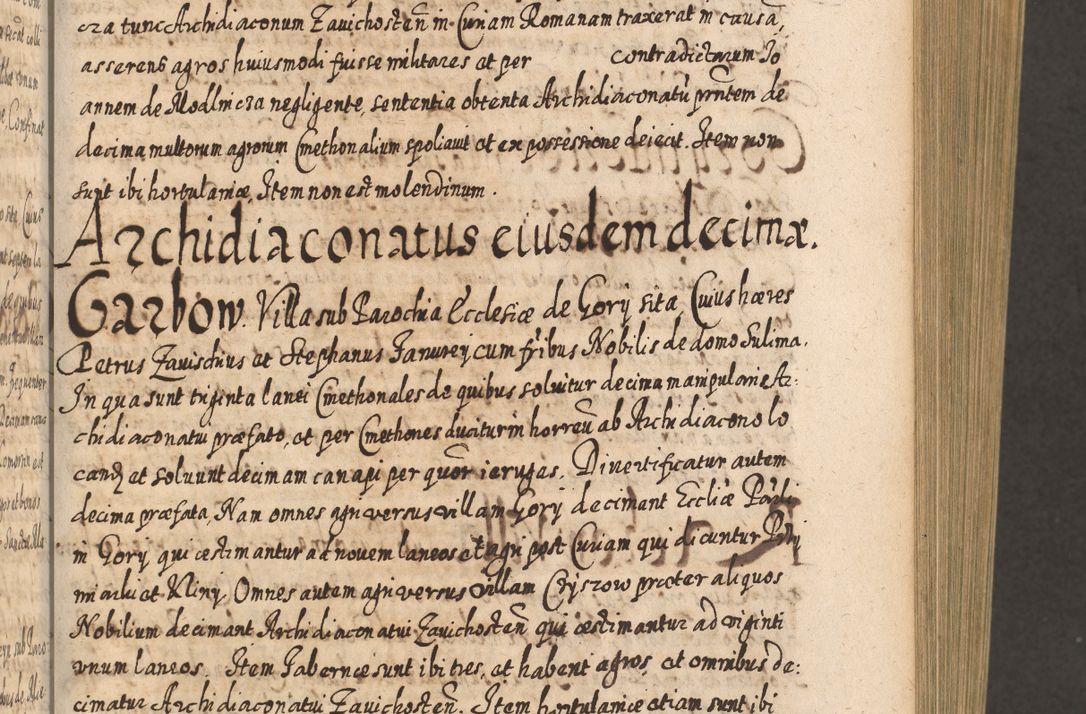 cza tunc Archidiaconum Zauichosteñ in Curiam Romanam traxerat in causã,
asserens agros huiusmodi fuisse militares et per contradictarum Jo
annem de Modlnicza negligente, sententia obtenta Archidiaconatũ prñtem de
decima multorum agrorum Cmethonalium spoliauit et ex possessione deiecit. Item non
sunt ibi hortulaniæ, Item non est molendinum.
Archidiaconatus eiusdem decimæ.
Garbow. Villa sub Parochia Ecclesiæ de Gory sita, Cuius hæres
Petrus Zauischius et Stephanus Janurey, cum fribus Nobilis de domo Sulima.
In qua sunt triginta lanei Cmethonales de quibus soluitur decima manipularis Ar:
chidiaconatui præfato, et per Cmethones ducitur in horreũ ab Archidiacono lo
cand et soluunt decimam canapi per quor ierugas. Diuertificatur autem
decima præfata, Nam omnes agri versus villam Gory decimant Eccliæ Parli
in Gory qui æstimantur ad nouem laneos et agri post Curiam qui dicuntur
et Kliny. Omnes autem agri versus Villam Cryszow præter aliquos
Nobilium decimant Archidiaconatui Zauichosteñ qui æstimantur ad viginti
vnum laneos. Item Tabernæ sunt ibi tres, et habent agros et omnibus de:
cimatur Archidiaconatui Zauichosteñ. Item hortulaniæ etiam sunt ibi